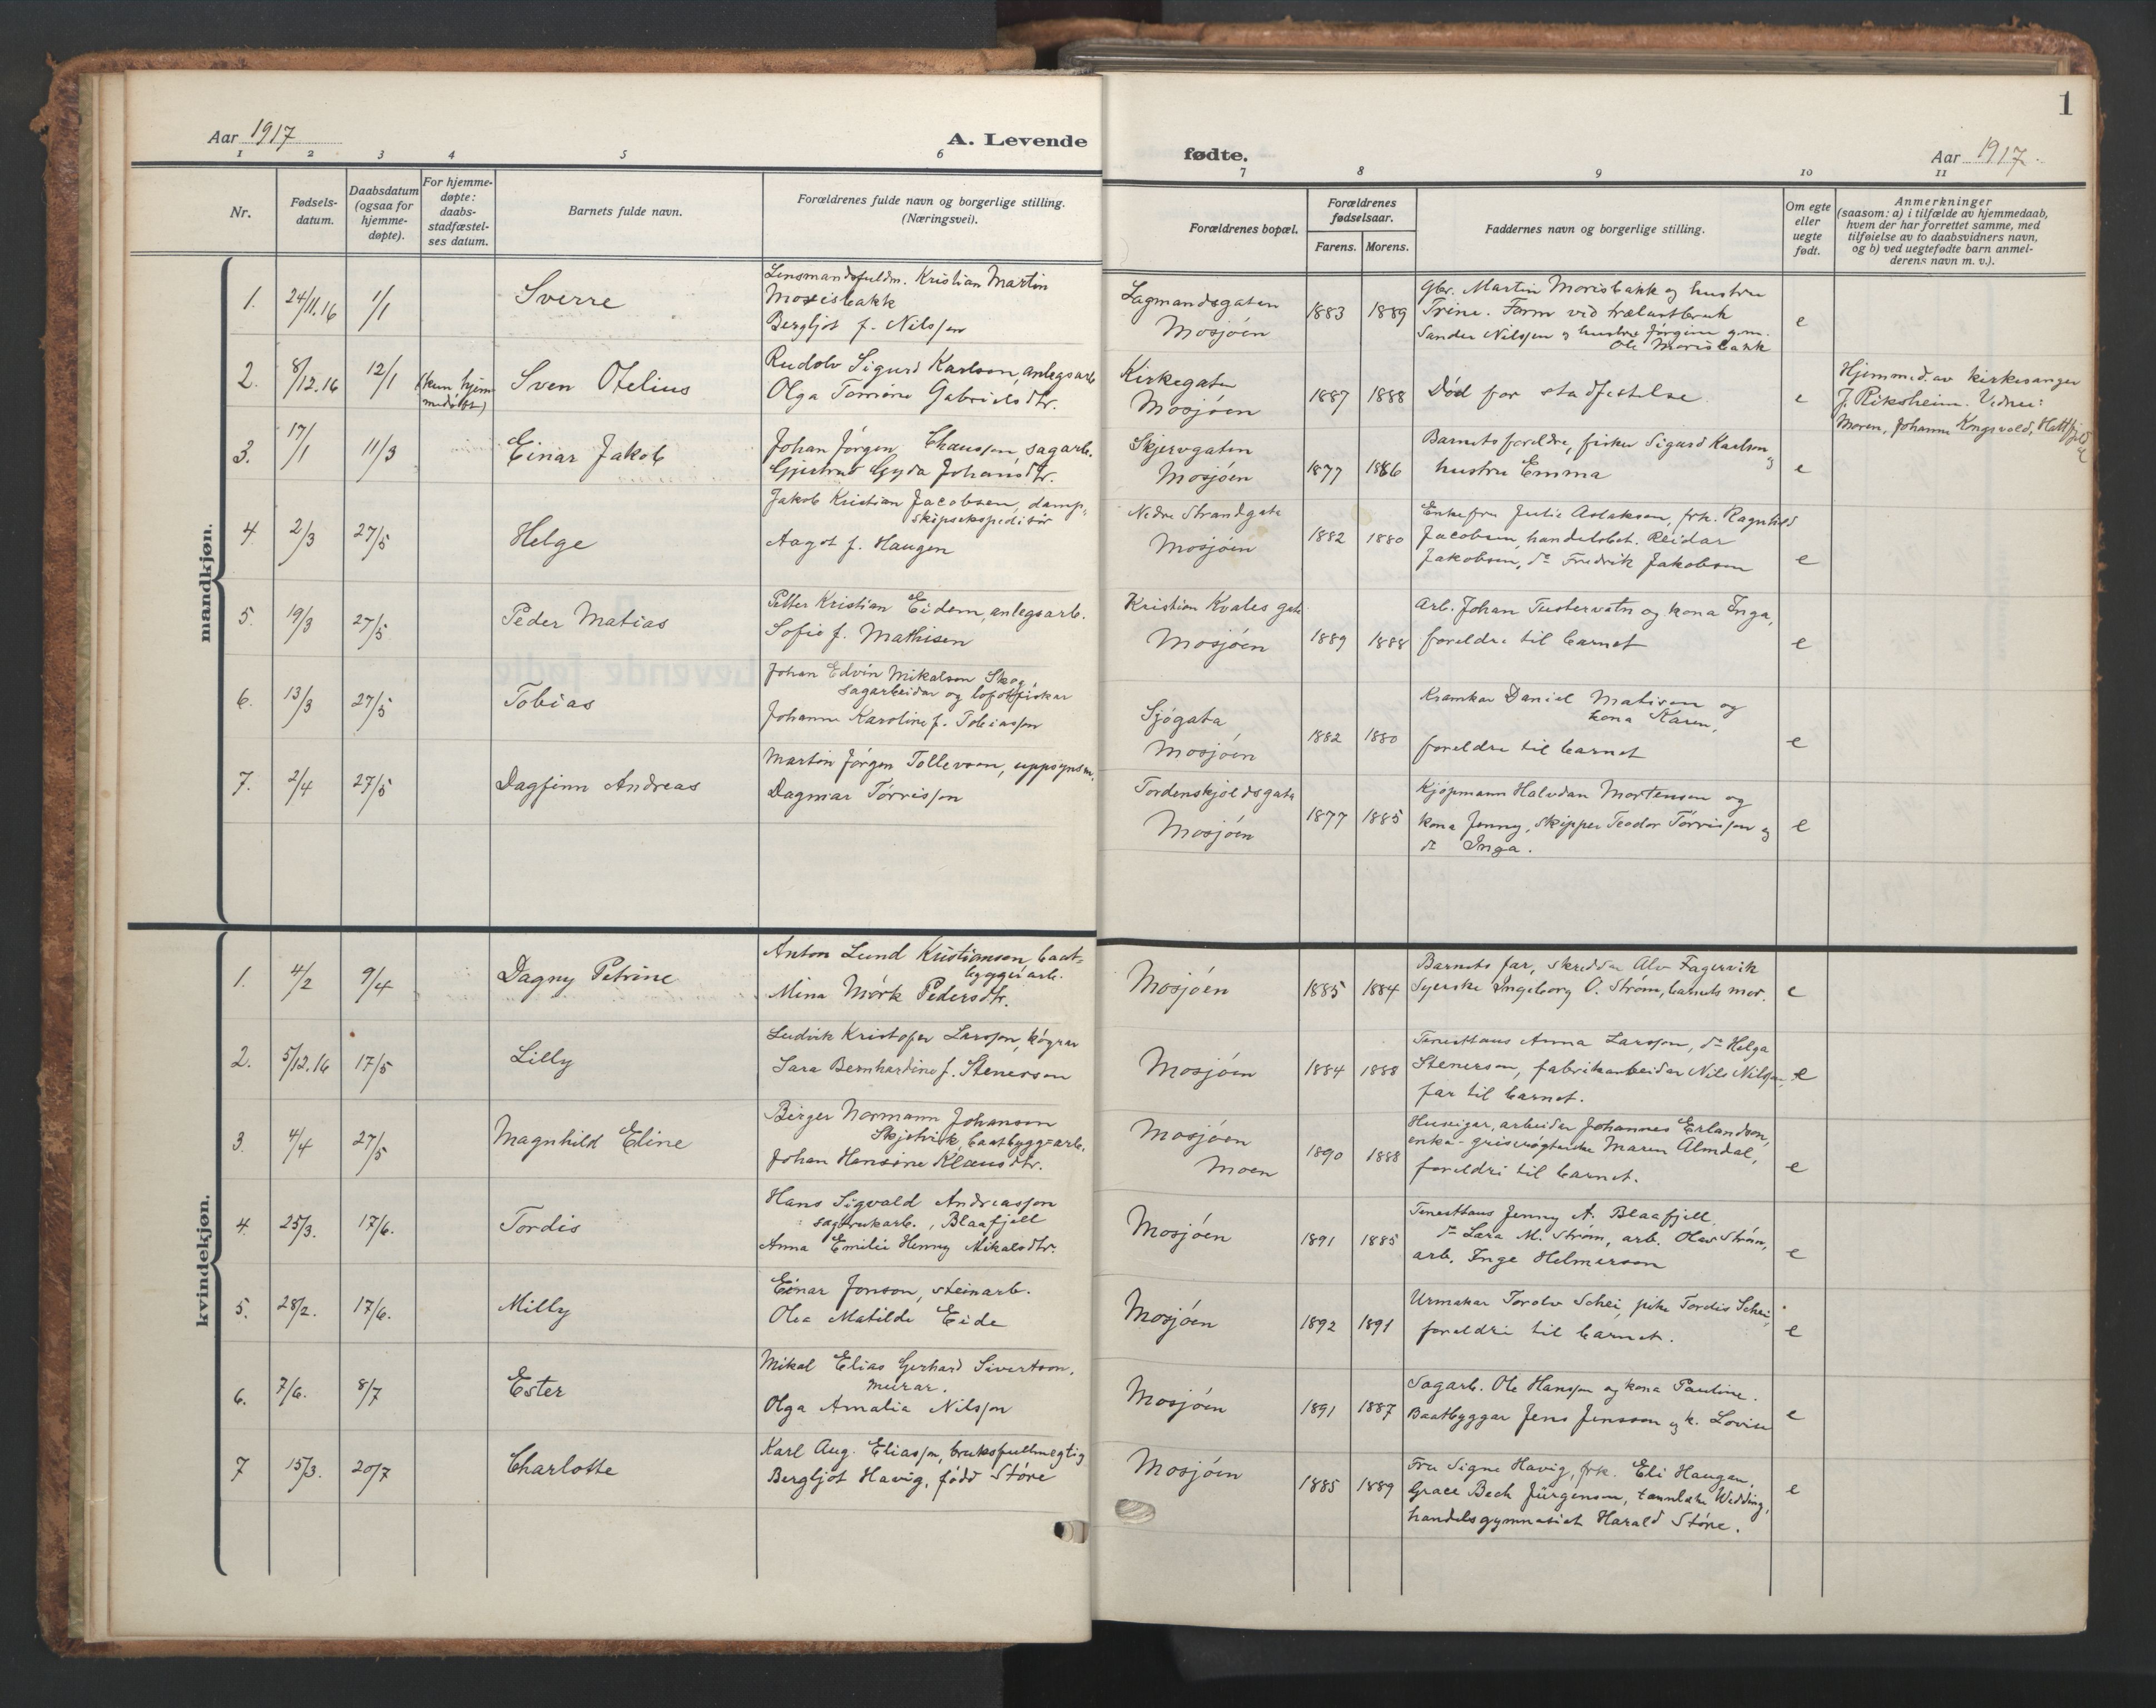 1
Aar 1917
A. Levende
fødte.
Aar 1917.
1 2 3 4 5 6 7 8 9 10 11
Nr.
Fødsels-
datum.
Daabsdatum
(ogsaa for
hjemme-
døpte).
For hjemme-
døpte:
daabs-
stadfæstel-
ses datum.
Barnets fulde navn.
Forældrenes fulde navn og borgerlige stilling.
(Næringsvei).
Forældrenes bopæl.
Forældrenes
fødselsaar.
Farens. Morens.
Faddernes navn og borgerlige stilling.
Om egte
eller
uegte
født.
Anmerkninger
(saasom: a) i tilfælde av hjemmedaab,
hvem der har forrettet samme, med
tilføielse av to daabsvidners navn,
og b) ved uegtefødte barn anmel-
derens navn m. v.).
mandkjøn.
1. 24/11.16 1/1 Sverre
Lensmandsfuldm. Kristian Martin
Morisbakk
Bergljot f. Nilssen
Lagmandsgaten
Mosjöen
1883 1889
Gbr. Martin Morisbakk og hustru
Trine. Form. ved trælastbruk
Sander Nilssen og hustru Jørgine g.m.
Ole Morisbakk
e
2. 8/12.16 12/1 (kun hjem
medøbt) Sven Otelius
Rudolv Sigurd Karlson, anlegsarb
Olga Tomine Gabrielsdtr.
Kirkegaten
Mosjöen
1887 1888
Död for stadfestelse
e
Hjemmed. av kirkesanger
J. Riksheim. Vidner:
Moren, Johanne Kongsvold, Hattfjeld
3. 17/1 11/3 Einar Jakob
Johan Jörgen Chausson, sagarb.
Gjertrud Gyda Johansdtr.
Skjervgaten
Mosjöen
1877 1886
Barnets foreldre, fisker Sigurd Karlson og
hustru Emma
e
4. 2/3 27/5 Helge
Jakob Kristian Jacobsen, damp-
skipsekspeditör
Aagot f. Haugen
Nedre Strandgata
Mosjöen
1882 1880
Enkefru Julie Aslaksen, frk. Ragnhild
Jacobsen, handelsbet. Reidar
Jakobsen, do Fredrik Jakobsen
e
5. 19/3 27/5 Peder Matias
Petter Kristian Eidem, anlegsarb.
Sofie f. Mathisen
Kristian Kvales gata
Mosjöen
1889 1888
Arb. Johan Tustervatn og kona Inga,
foreldre til barnet
e
6. 13/3 27/5 Tobias
Johan Edvin Mikalson Skog,
sagarbeidar og lofotfiskar
Johanne Karoline f. Tobiasson
Sjögata
Mosjöen
1882 1880
Kramkar Daniel Matison og
kona Karen,
foreldre til barnet
e
7. 2/4 27/5 Dagfinn Andreas
Martin Jörgen Tollevson, uppsynsm.
Dagmar Törrisson
Tordenskjoldsgata
Mosjöen
1877 1885
Kjöpmann Halvdan Mortensen og
kona Jenny, skipper Teodor Törrisson og
do Inga.
e
kvindekjøn.
1. 4/2 9/4 Dagny Petrine
Anton Lund Kristianson baat-
byggjiarb.
Mina Mörk Pedersdtr.
Mosjöen
1885 1884
Barnets far, skreddar Alv Fagervik
Syerske Ingeborg O. Ström, barnets mor.
e
2. 5/12.16 17/5 Lilly
Ludvik Kristofer Larsson, kögrar
Sara Bernhardine f. Stenerson
Mosjöen
1884 1888
Tenesttaus Anna Larsson, do Helga
Stenerson, fabrikarbeidar Nils Nilsson,
far til barnet.
e
3. 4/4 27/5 Magnhild Eline
Birger Normann Johanson
Skjelvik baatbygg-arb.
Johan Hansine Klausdtr.
Mosjöen
Moen
1890 1888
Huseigar, arbeidar Johannes Erlandson,
enke- griserögterske Maren Almdal,
foreldri til barnet.
e
4. 25/3. 17/6. Tordis
Hans Sigvald Andreasson
sagbrukarb., Blaafjell
Anna Emilie Henny Mikalsdtr.
Mosjöen
1891 1885
Tenesttaus Jenny A. Blaafjell,
do Lara M. Ström, arb. Olav Ström,
arb. Inge Helmerson
e
5. 28/2. 17/6. Milly
Einar Jonson, steinarb.
Olea Matilde Eide
Mosjöen
1892 1891
Urmakar Torolv Schei, pike Tordis Schei,
foreldri til barnet.
e
6. 7/6. 8/7 Ester
Mikal Elias Gerhard Sivertson,
murar.
Olga Amalia Nilsson
Mosjöen
1891 1887
Sagarb. Ole Hansson og kona Pauline.
Baatbyggar Jens Jensson og k. Lovise
e
7 15/3. 20/7 Charlotte
Karl Aug. Eliasson, bruksfullmegtig
Bergljot Havig, född Störe
Mosjöen
1885 1889
Fru Signe Havig, frk. Eli Haugan,
Grace Bech Jürgensen, tannlæke Wedding,
handelsgymnasiet Harald Störe.
e